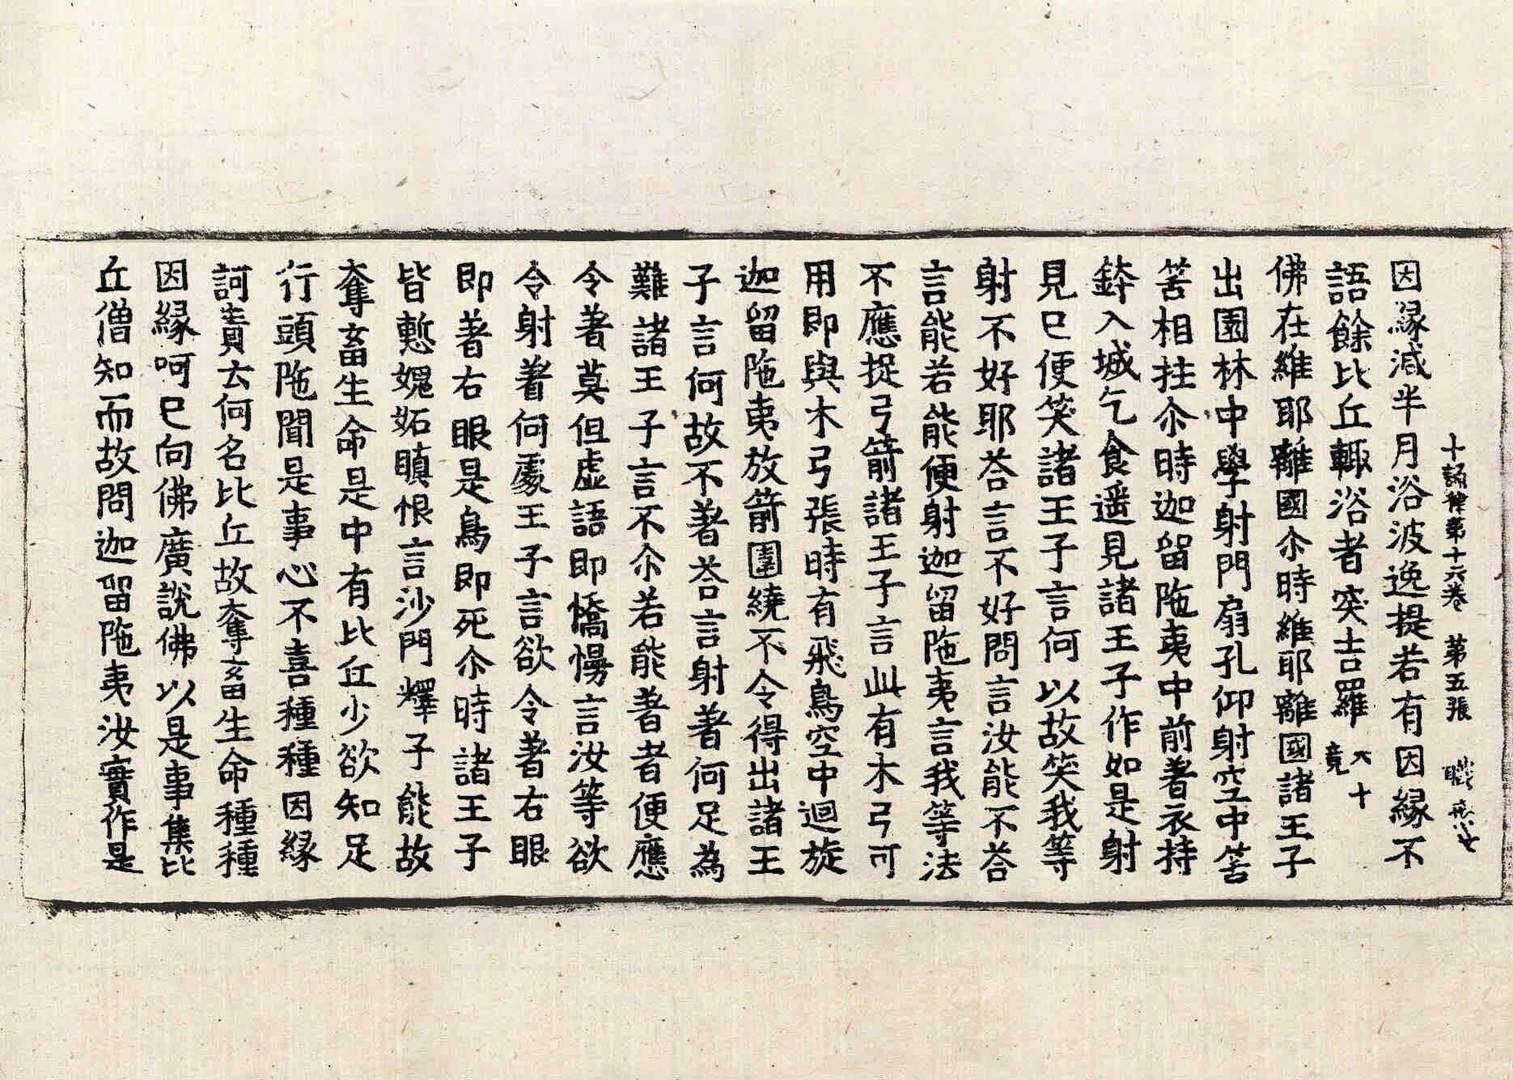 十誦律第十六卷 第五張 職
因縁减半月浴波逸提若有因縁不
語餘比丘輙浴者突吉羅 六十竟
佛在維耶離國尒時維耶離國諸王子
出園林中學射門扇孔仰射空中筈
筈相拄尒時迦留陁夷中前著衣持
鉢入城乞食遥見諸王子作如是射
見已便笑諸王子言何以故笑我等
射不好耶荅言不好問言汝能不荅
言能若能便射迦留陁夷言我等法
不應捉弓箭諸王子言此有木弓可
用即與木弓張時有飛鳥空中迴旋
迦留陁夷放箭圍繞不令得出諸王
子言何故不著荅言射著何足為
難諸王子言不尒若能著者便應
令著莫但虚語即憍慢言汝等欲
令射著何處王子言欲令著右眼
即著右眼是鳥即死尒時諸王子
皆慙媿妬瞋恨言沙門釋子能故
奪畜生命是中有比丘少欲知足
行頭陁聞是事心不喜種種因縁
訶責云何名比丘故奪畜生命種種
因縁呵已向佛廣說佛以是事集比
丘僧知而故問迦留陁夷汝實作是